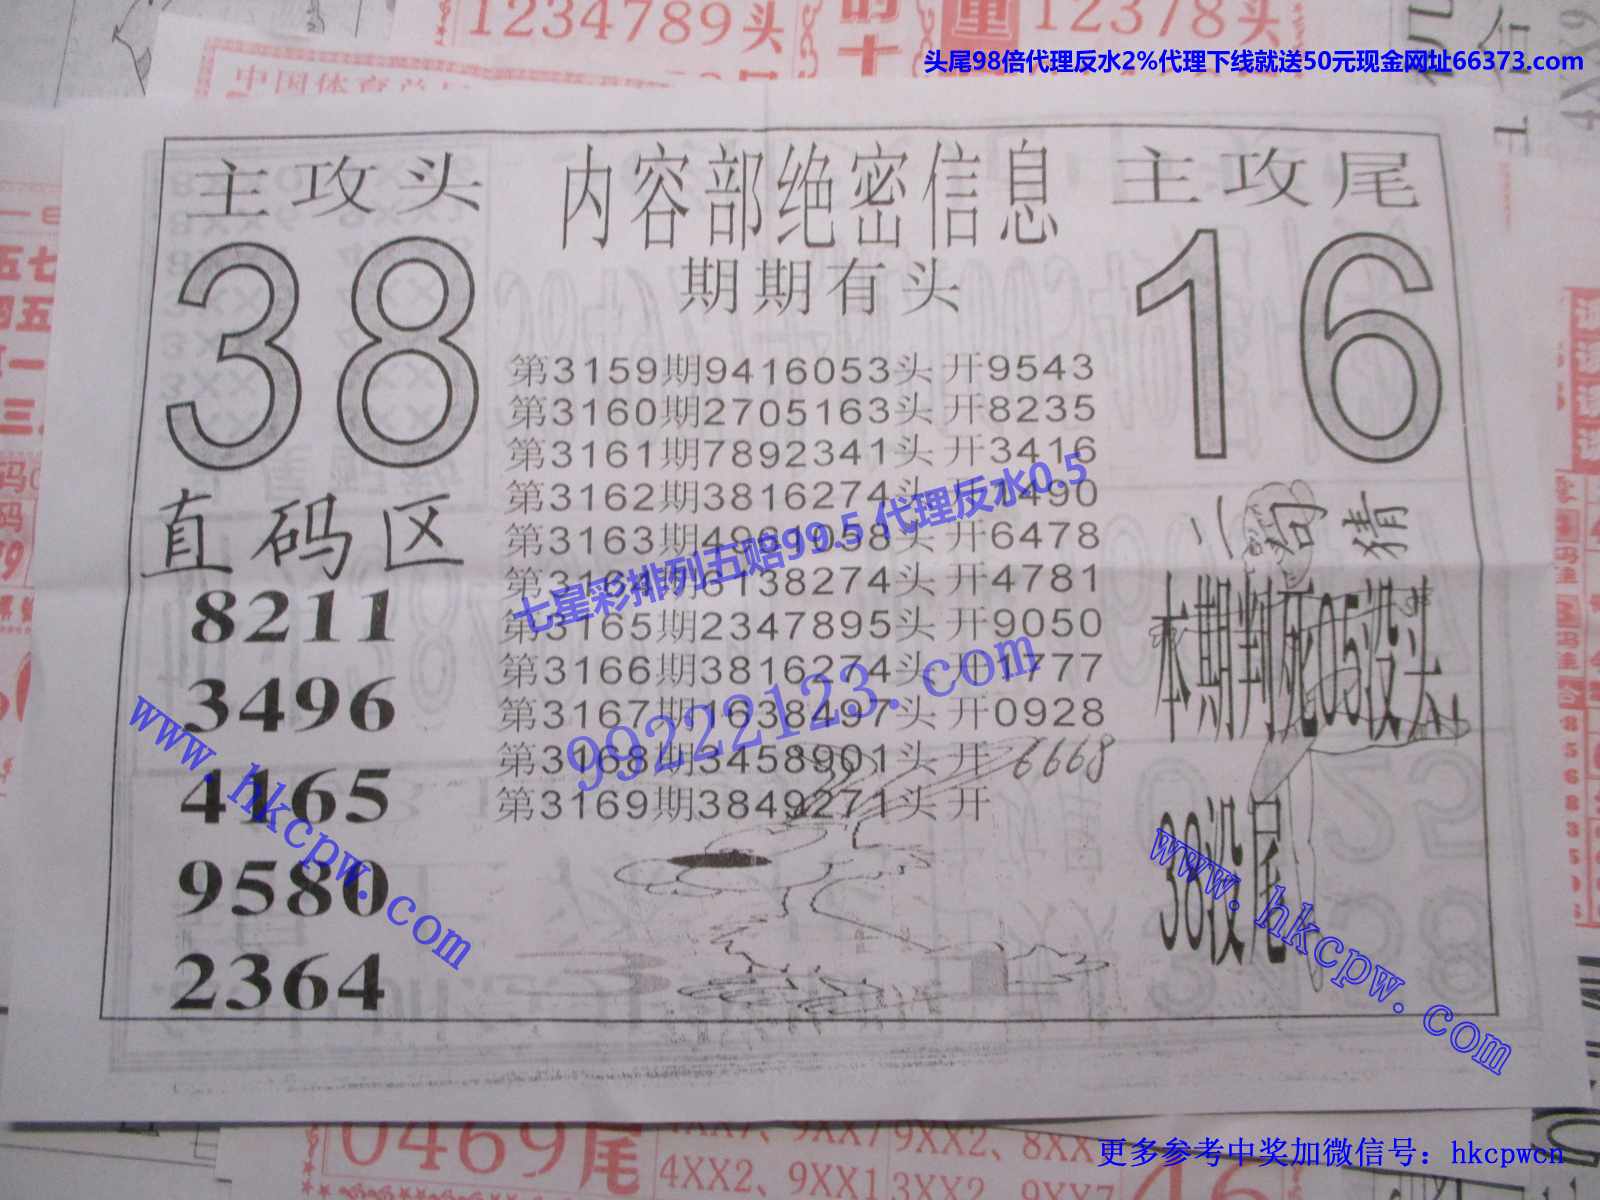 1234789头
的
重
12378头
头尾98倍代理反水2%代理下线就送50元现金网址66373.com
主攻头
38
内容部绝密信息
期期有头
主攻尾
16
第3159期9416053头 开9543
第3160期2705163头 开8235
第3161期7892341头 开3416
第3162期3816274头 开1490
第3163期4961058头 开6478
第3164期6138274头 开4781
第3165期2347895头 开9050
第3166期3816274头 开1777
第3167期1638497头 开0928
第3168期3458901头 开6668
第3169期3849271头 开
七星彩排列五赔99.5 代理反水0.5
99222123.com
直码区
8211
3496
4165
9580
2364
www.hkcpw.com
猜
本期判死05没头
38没尾
www.hkcpw.com
0469尾
4XX2、9XX1
3XX2、9XX7
更多参考中奖加微信号：hkcpwcn